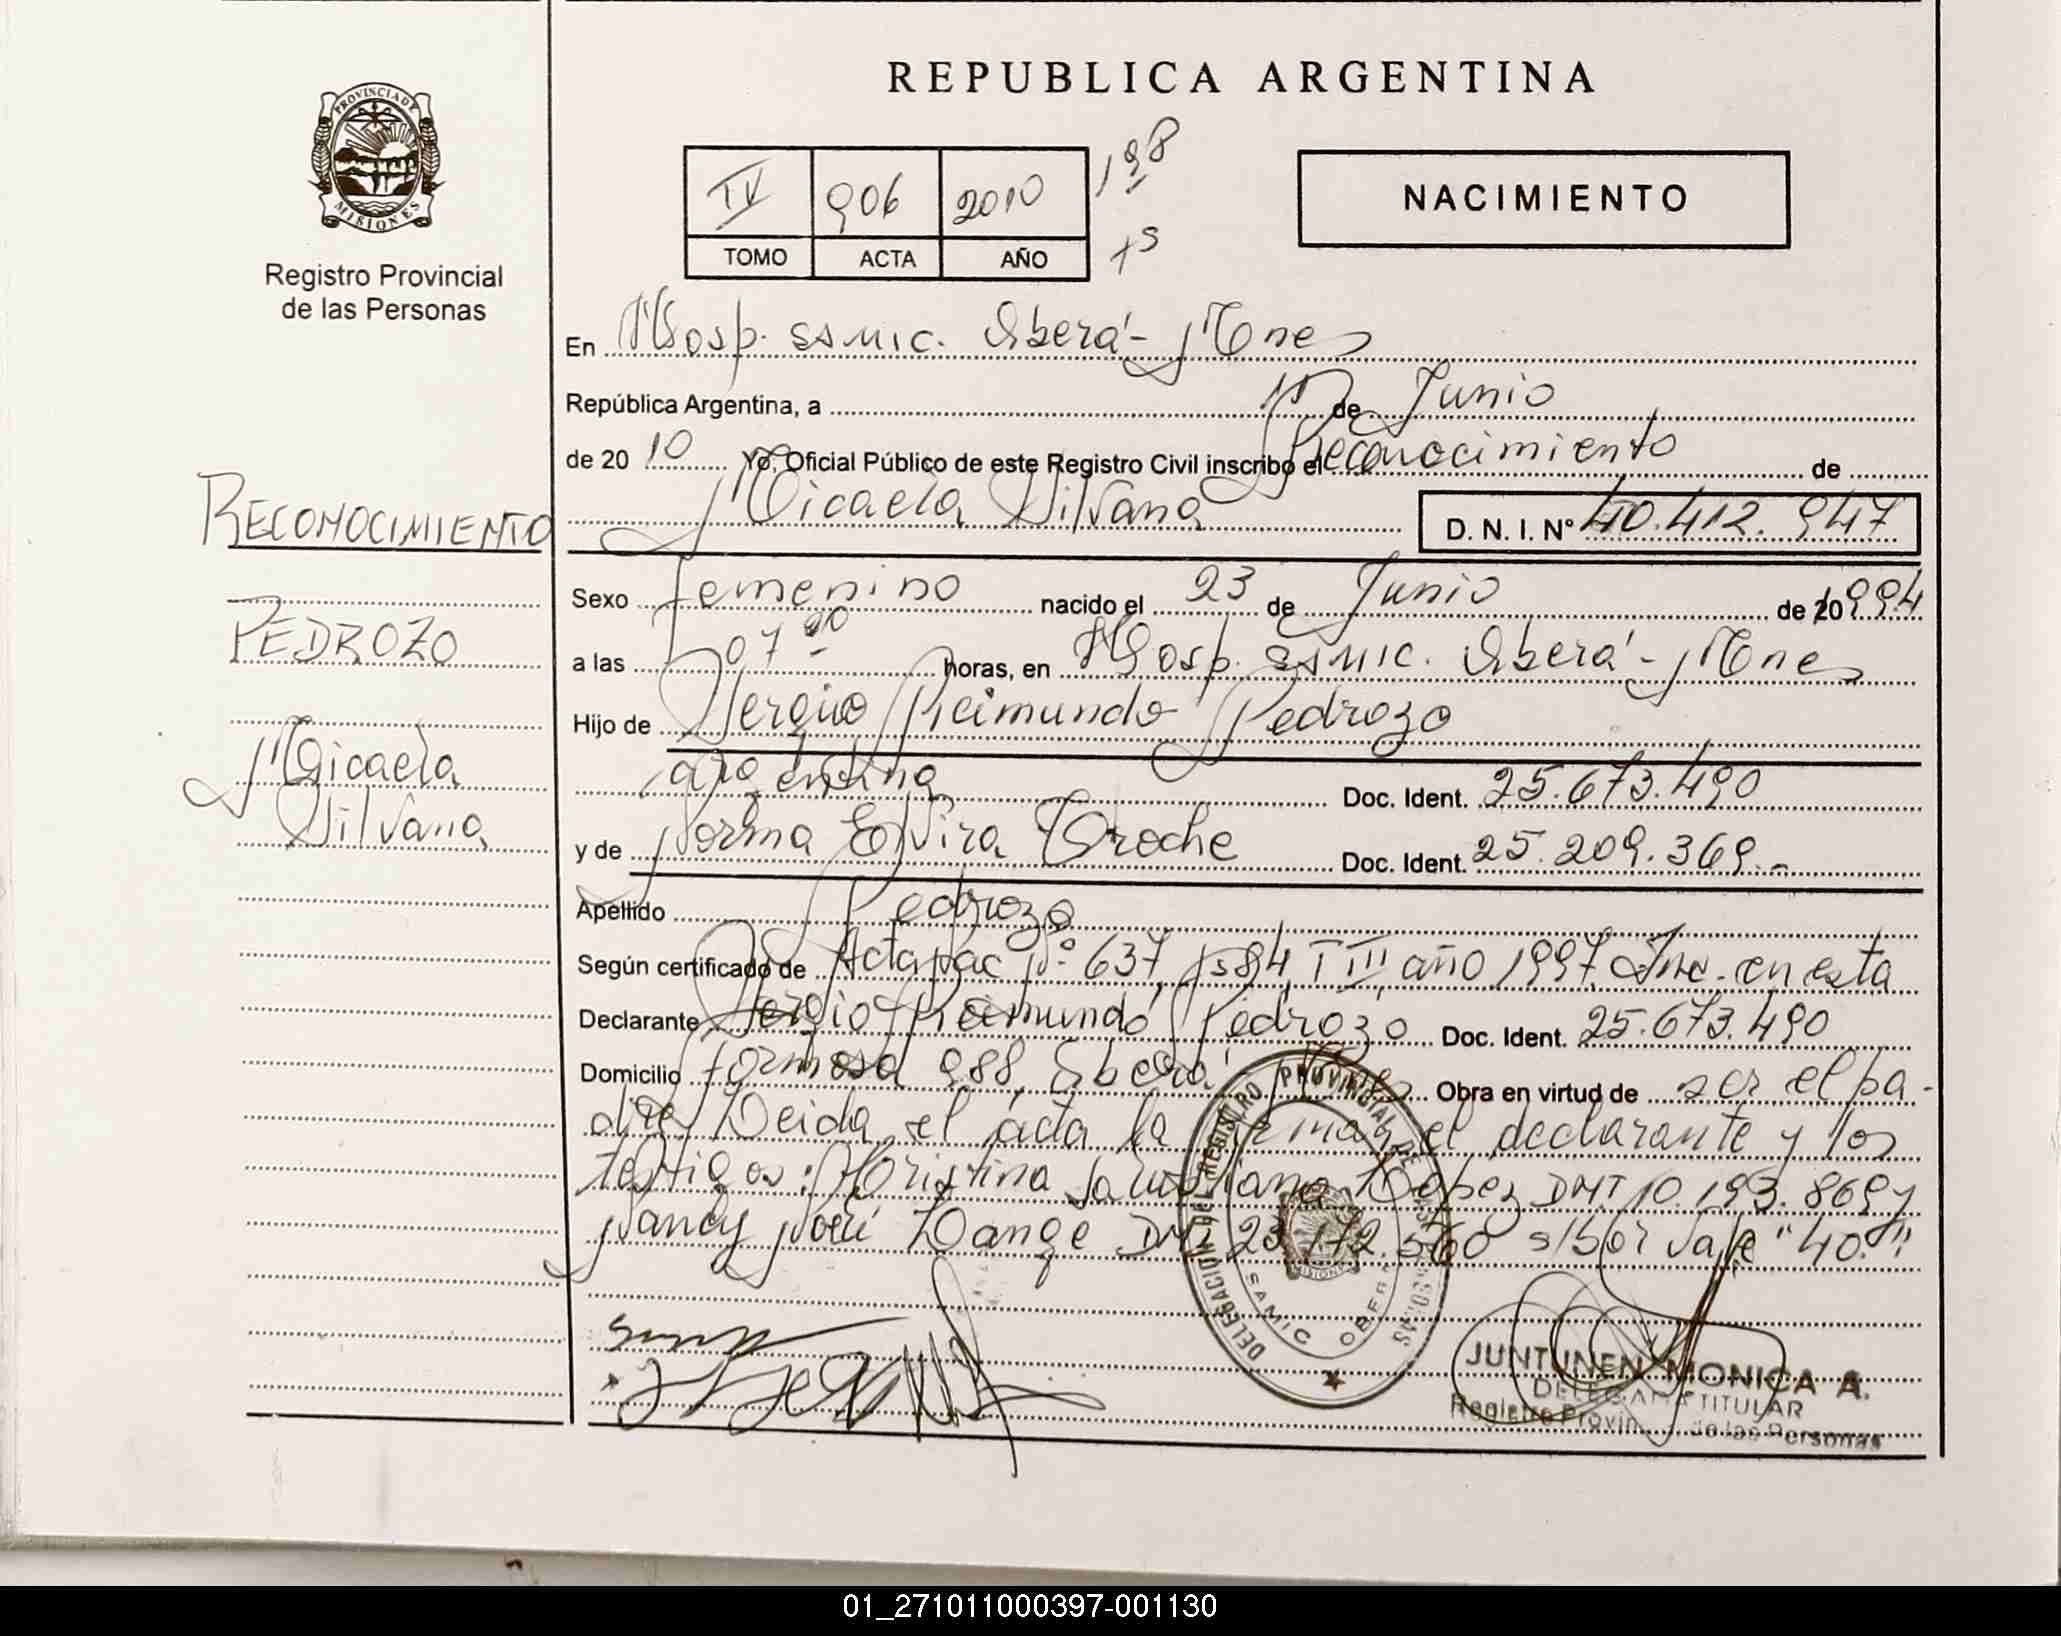 REPUBLICA ARGENTINA
PROVINCIA DE
MISIONES
Registro Provincial
de las Personas
IV 906 2010 198
TOMO ACTA AÑO
NACIMIENTO
En Hosp. SAMIC. Oberá - Mnes
República Argentina, a 11 de Junio
de 20 10 Yo, Oficial Público de este Registro Civil inscribo el Reconocimiento de
Micaela Silvana D. N. I. Nº 40.412.947
RECONOCIMIENTO
Sexo femenino nacido el 23 de Junio de 1994
PEDROZO
a las 07 horas, en Hosp. SAMIC. Oberá - Mnes
Hijo de Sergio Reimundo Pedrozo
Micaela
Silvana
argentina Doc. Ident. 25.673.490
y de Norma Elvira Doc. Ident. 25.209.369.-
Apellido Pedrozo
Según certificado de Acta Nac Nº 637, Fs 84, T III, año 1997. Insc. en esta
Declarante Sergio Reimundo Pedrozo Doc. Ident. 25.673.490
Domicilio Formosa 988, Oberá Mnes Obra en virtud de ser el pa-
dre Leida el acta la firman el declarante y los
testigos: Cristina López DNI 10.193.869 y
Nancy Noemí DNI 23.172.560 s/bor Vale "40."
DELEGACION DEL REGISTRO PROVINCIAL DE LAS PERSONAS
SAMIC OBERA
MISIONES
JUNTUNEN MONICA A.
DELEGADA TITULAR
Registro Provincial de las Personas
01_271011000397-001130